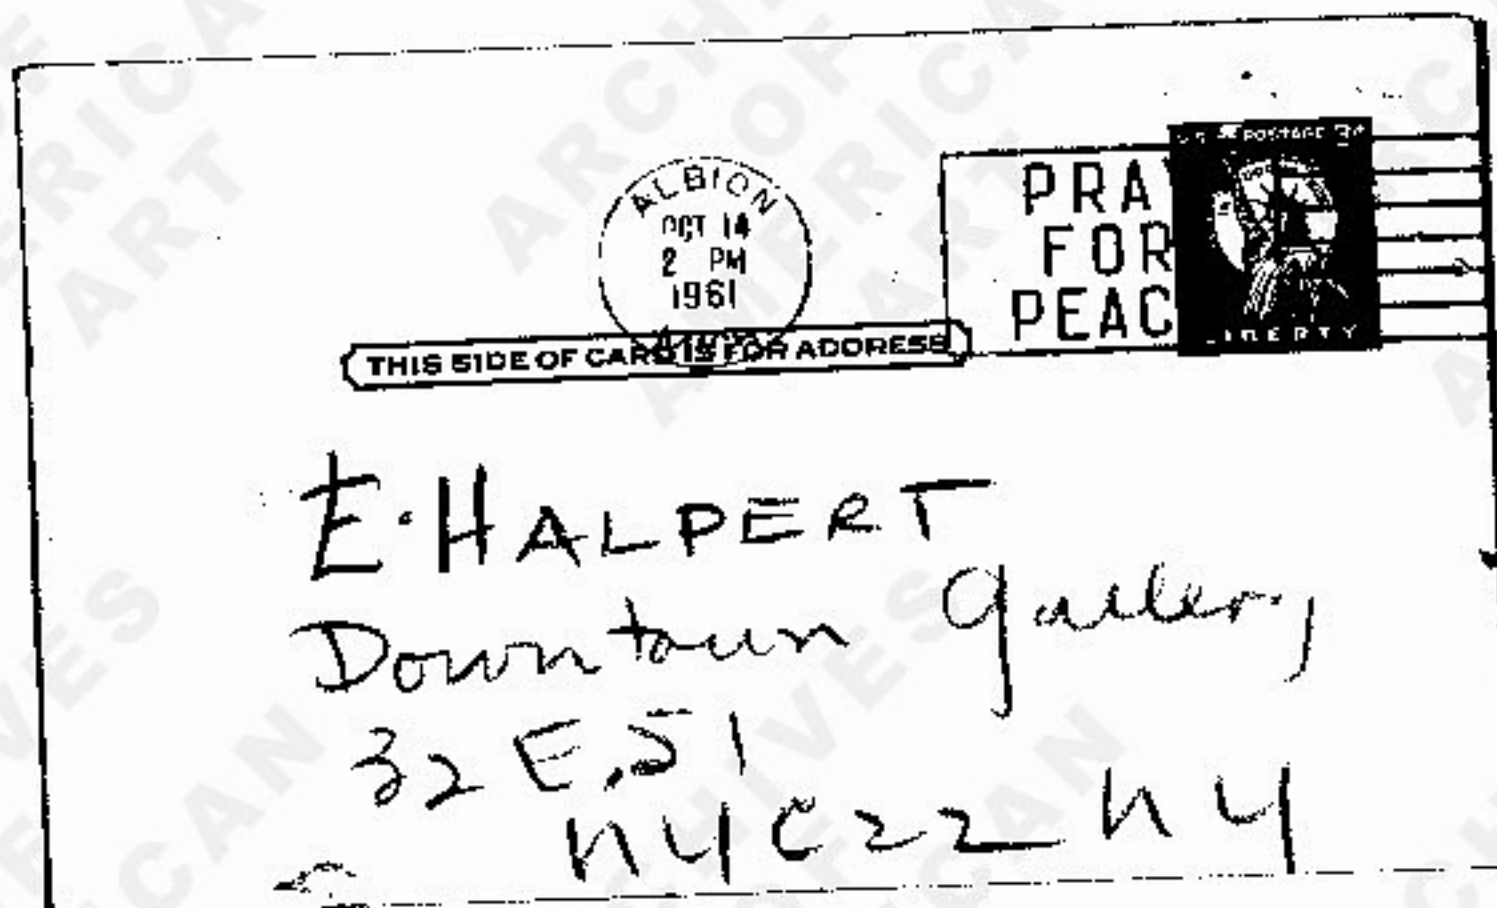 ALBION
OCT 14
2 PM
1961
PRA
FOR
PEAC
U.S. POSTAGE
LIBERTY
THIS SIDE OF CARD IS FOR ADDRESS
E. HALPERT
Downtown Gallery
32 E. 51
NYC 22 NY
ARCHIVES OF AMERICAN ART